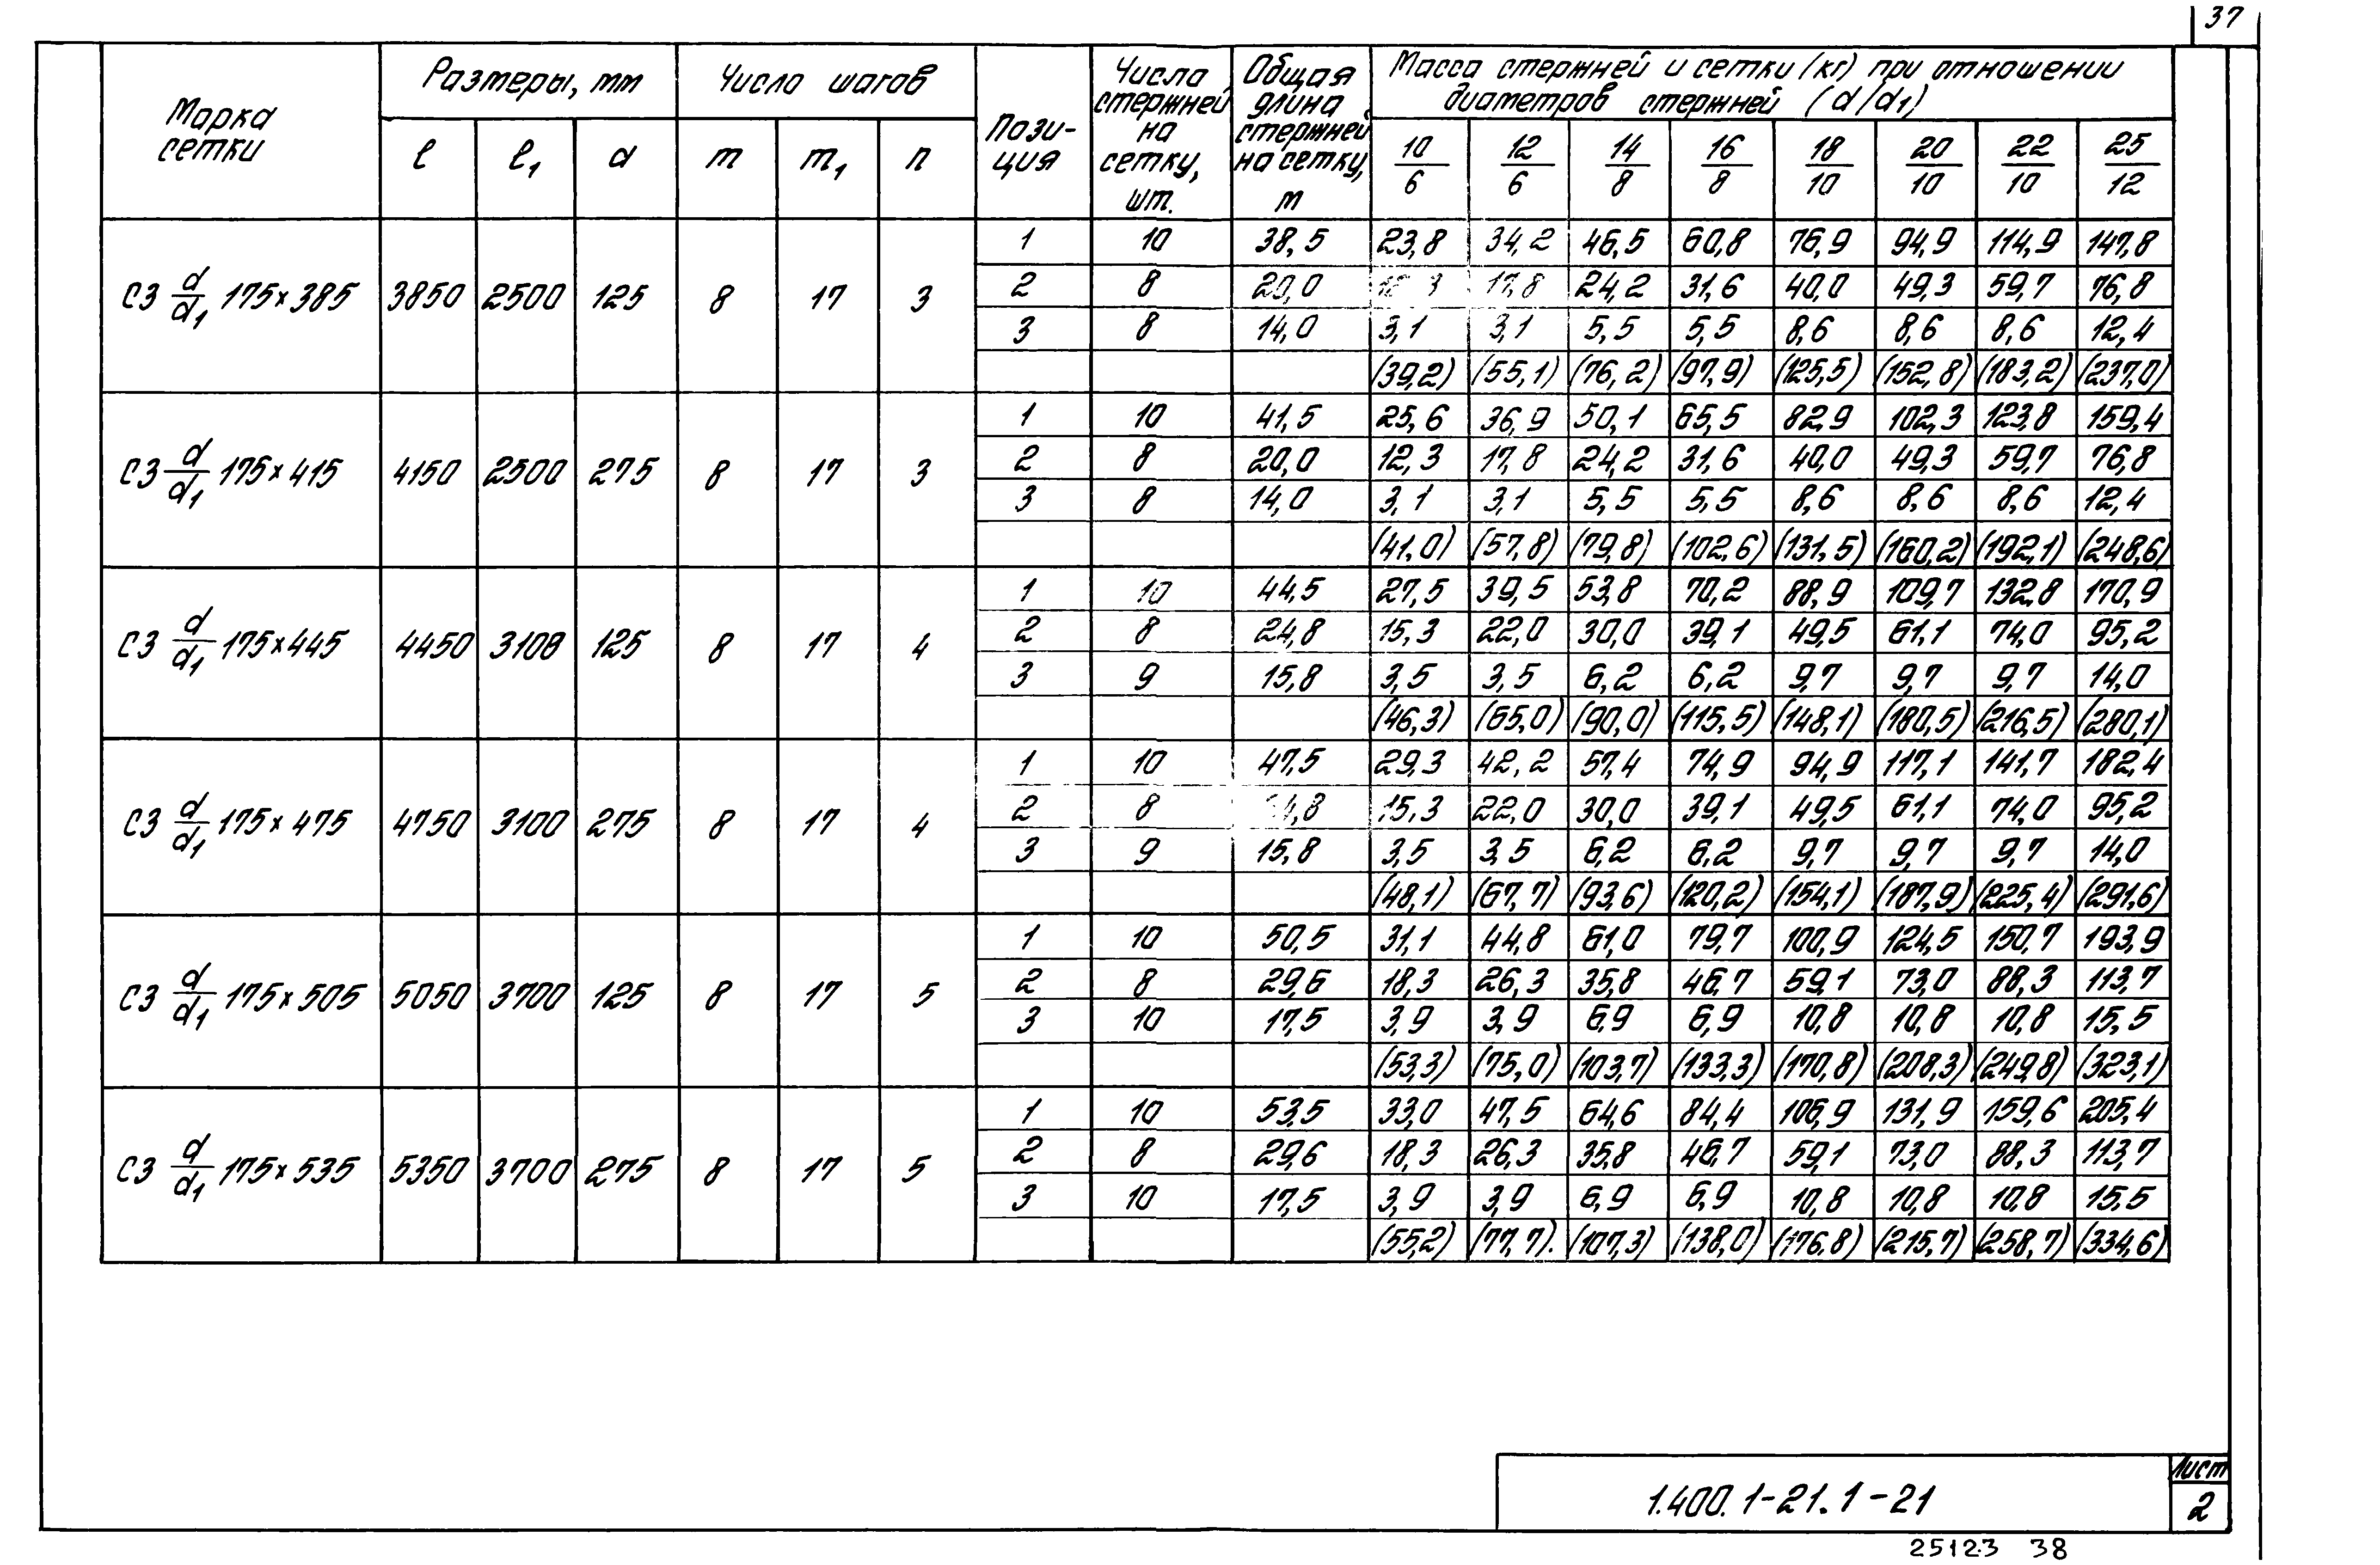 37
Марка сетки | Размеры, мм | Число шагов | Пози-ция | Число стержней на сетку, шт. | Общая длина стержней на сетку, м | Масса стержней и сетки (кг) при отношении диаметров стержней (d/d1)
l | l1 | a | m | m1 | n | 10/6 | 12/6 | 14/8 | 16/8 | 18/10 | 20/10 | 22/10 | 25/12
С3 d/d1 175×385 | 3850 | 2500 | 125 | 8 | 17 | 3
1 | 10 | 38,5 | 23,8 | 34,2 | 46,5 | 60,8 | 76,9 | 94,9 | 114,9 | 147,8
2 | 8 | 20,0 | 12,3 | 17,8 | 24,2 | 31,6 | 40,0 | 49,3 | 59,7 | 76,8
3 | 8 | 14,0 | 3,1 | 3,1 | 5,5 | 5,5 | 8,6 | 8,6 | 8,6 | 12,4
(39,2) | (55,1) | (76,2) | (97,9) | (125,5) | (152,8) | (183,2) | (237,0)
С3 d/d1 175×415 | 4150 | 2500 | 275 | 8 | 17 | 3
1 | 10 | 41,5 | 25,6 | 36,9 | 50,1 | 65,5 | 82,9 | 102,3 | 123,8 | 159,4
2 | 8 | 20,0 | 12,3 | 17,8 | 24,2 | 31,6 | 40,0 | 49,3 | 59,7 | 76,8
3 | 8 | 14,0 | 3,1 | 3,1 | 5,5 | 5,5 | 8,6 | 8,6 | 8,6 | 12,4
(41,0) | (57,8) | (79,8) | (102,6) | (131,5) | (160,2) | (192,1) | (248,6)
С3 d/d1 175×445 | 4450 | 3100 | 125 | 8 | 17 | 4
1 | 10 | 44,5 | 27,5 | 39,5 | 53,8 | 70,2 | 88,9 | 109,7 | 132,8 | 170,9
2 | 8 | 24,8 | 15,3 | 22,0 | 30,0 | 39,1 | 49,5 | 61,1 | 74,0 | 95,2
3 | 9 | 15,8 | 3,5 | 3,5 | 6,2 | 6,2 | 9,7 | 9,7 | 9,7 | 14,0
(46,3) | (65,0) | (90,0) | (115,5) | (148,1) | (180,5) | (216,5) | (280,1)
С3 d/d1 175×475 | 4750 | 3100 | 275 | 8 | 17 | 4
1 | 10 | 47,5 | 29,3 | 42,2 | 57,4 | 74,9 | 94,9 | 117,1 | 141,7 | 182,4
2 | 8 | 24,8 | 15,3 | 22,0 | 30,0 | 39,1 | 49,5 | 61,1 | 74,0 | 95,2
3 | 9 | 15,8 | 3,5 | 3,5 | 6,2 | 6,2 | 9,7 | 9,7 | 9,7 | 14,0
(48,1) | (67,7) | (93,6) | (120,2) | (154,1) | (187,9) | (225,4) | (291,6)
С3 d/d1 175×505 | 5050 | 3700 | 125 | 8 | 17 | 5
1 | 10 | 50,5 | 31,1 | 44,8 | 61,0 | 79,7 | 100,9 | 124,5 | 150,7 | 193,9
2 | 8 | 29,6 | 18,3 | 26,3 | 35,8 | 46,7 | 59,1 | 73,0 | 88,3 | 113,7
3 | 10 | 17,5 | 3,9 | 3,9 | 6,9 | 6,9 | 10,8 | 10,8 | 10,8 | 15,5
(53,3) | (75,0) | (103,7) | (133,3) | (170,8) | (208,3) | (249,8) | (323,1)
С3 d/d1 175×535 | 5350 | 3700 | 275 | 8 | 17 | 5
1 | 10 | 53,5 | 33,0 | 47,5 | 64,6 | 84,4 | 106,9 | 131,9 | 159,6 | 205,4
2 | 8 | 29,6 | 18,3 | 26,3 | 35,8 | 46,7 | 59,1 | 73,0 | 88,3 | 113,7
3 | 10 | 17,5 | 3,9 | 3,9 | 6,9 | 6,9 | 10,8 | 10,8 | 10,8 | 15,5
(55,2) | (77,7) | (107,3) | (138,0) | (176,8) | (215,7) | (258,7) | (334,6)
1.400.1-21.1-21
Лист
2
25123 38